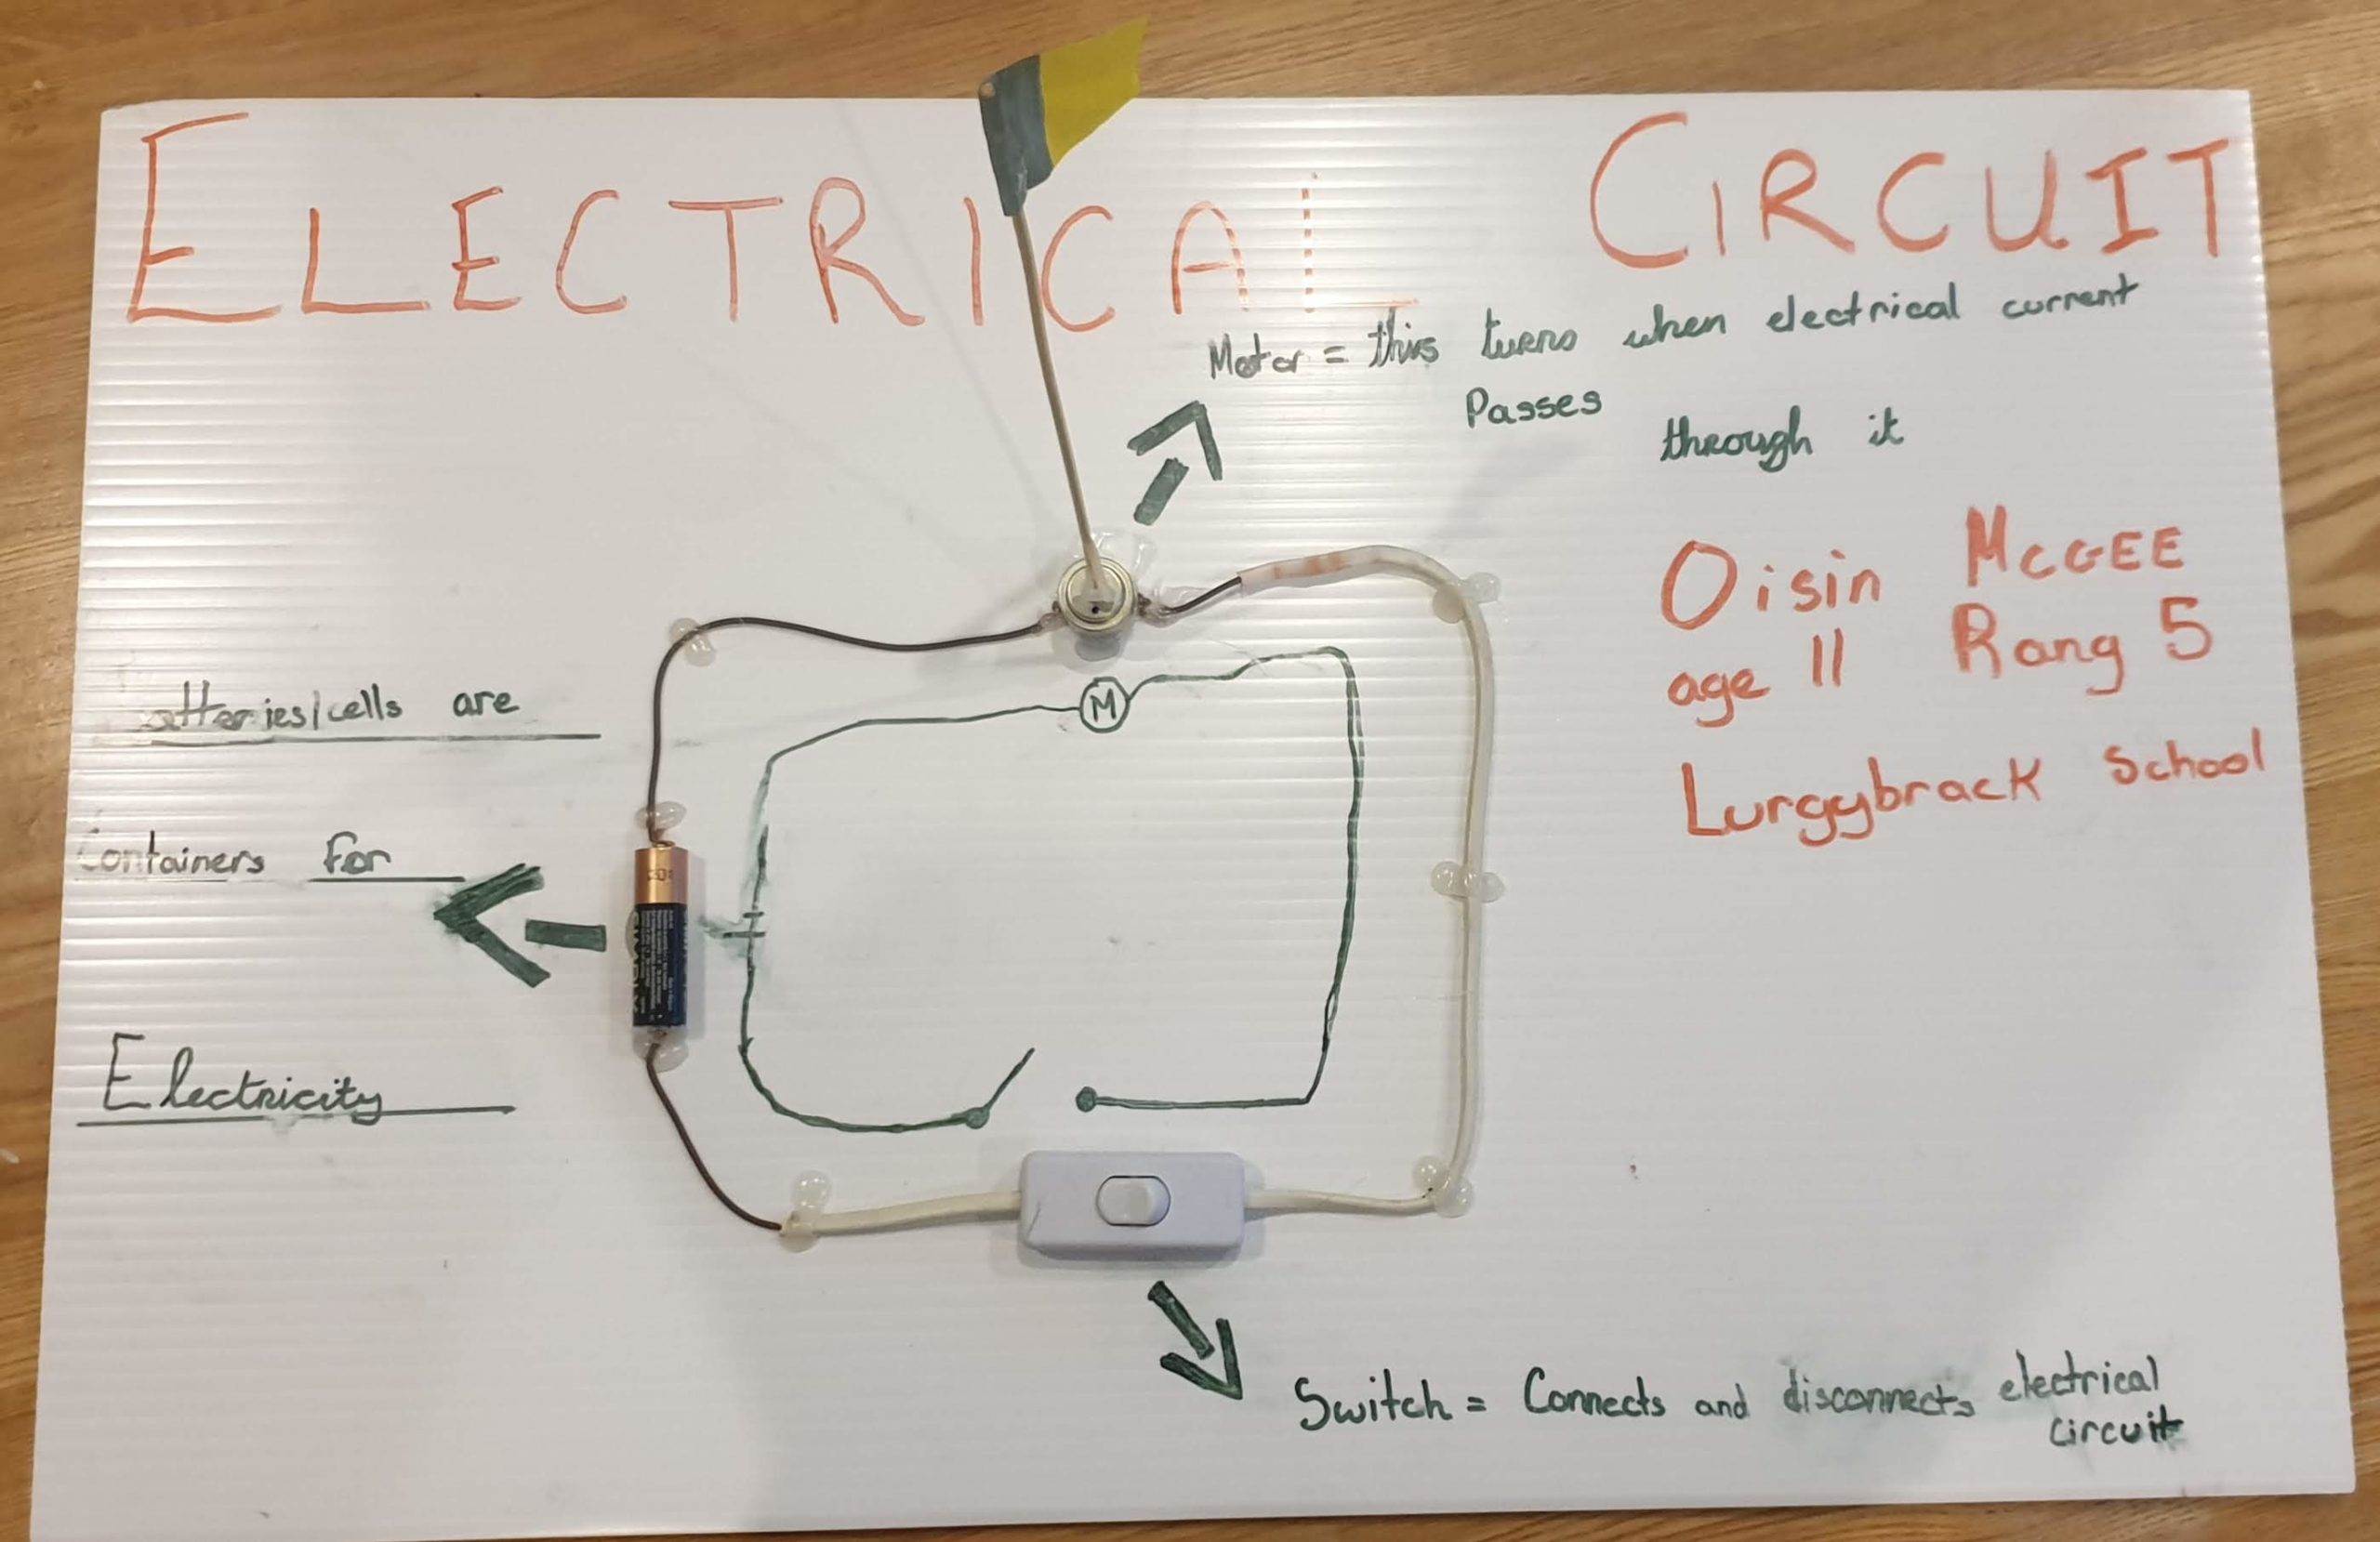 ELECTRICAL CIRCUIT
Motor = this turns when electrical current
Passes
through it
Oisin McGEE
age 11 Rang 5
Lurgybrack School
M
atteries/cells are
Containers for
Electricity
Switch = Connects and disconnects electrical
circuit